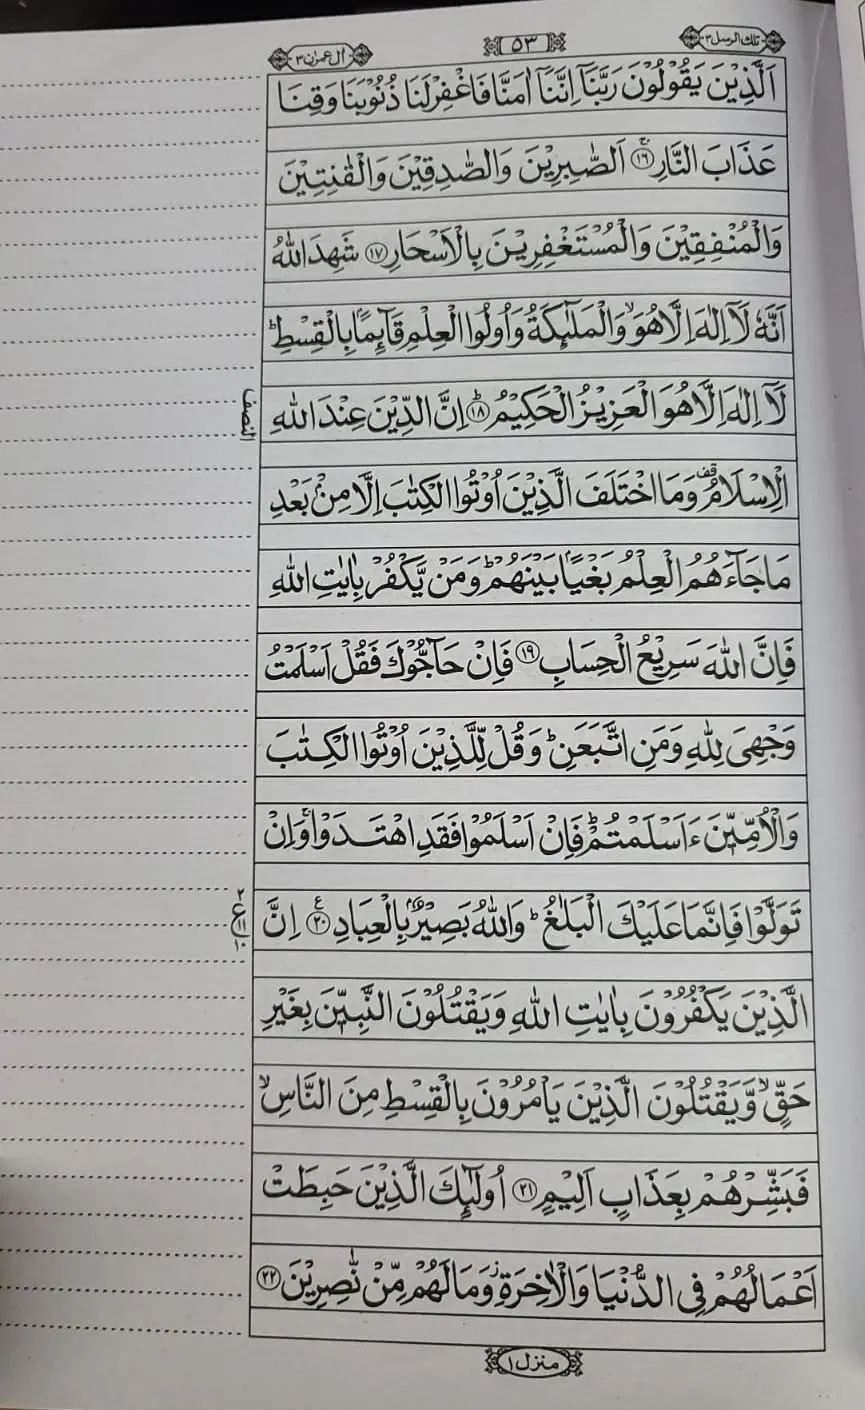 تلك الرسل ٣
٥٣
آل عمرٰن ٣
اَلَّذِيْنَ يَقُوْلُوْنَ رَبَّنَاۤ اِنَّنَاۤ اٰمَنَّا فَاغْفِرْ لَنَا ذُنُوْبَنَا وَقِنَا
عَذَابَ النَّارِ ۚ‏﴿۱۶﴾ اَلصّٰبِرِيْنَ وَالصّٰدِقِيْنَ وَالْقٰنِتِيْنَ
وَالْمُنْفِقِيْنَ وَالْمُسْتَغْفِرِيْنَ بِالْاَسْحَارِ ﴿۱۷﴾ شَهِدَ اللّٰهُ
اَنَّهٗ لَاۤ اِلٰهَ اِلَّا هُوَ ۙ وَالْمَلٰٓئِكَةُ وَاُولُوا الْعِلْمِ قَآئِمًاۢ بِالْقِسْطِ ؕ
لَاۤ اِلٰهَ اِلَّا هُوَ الْعَزِيْزُ الْحَكِيْمُ ؕ﴿۱۸﴾ اِنَّ الدِّيْنَ عِنْدَ اللّٰهِ
النصف
الْاِسْلَامُ قف وَمَا اخْتَلَفَ الَّذِيْنَ اُوْتُوا الْكِتٰبَ اِلَّا مِنْۢ بَعْدِ
مَا جَآءَهُمُ الْعِلْمُ بَغْيًاۢ بَيْنَهُمْ ؕ وَمَنْ يَّكْفُرْ بِاٰيٰتِ اللّٰهِ
فَاِنَّ اللّٰهَ سَرِيْعُ الْحِسَابِ ﴿۱۹﴾ فَاِنْ حَآجُّوْكَ فَقُلْ اَسْلَمْتُ
وَجْهِىَ لِلّٰهِ وَمَنِ اتَّبَعَنِ ؕ وَقُلْ لِّلَّذِيْنَ اُوْتُوا الْكِتٰبَ
وَالْاُمِّيّٖنَ ءَاَسْلَمْتُمْ ؕ فَاِنْ اَسْلَمُوْا فَقَدِ اهْتَدَوْا ۚ وَاِنْ
تَوَلَّوْا فَاِنَّمَا عَلَيْكَ الْبَلٰغُ ؕ وَاللّٰهُ بَصِيْرٌۢ بِالْعِبَادِ ﴿۲۰﴾ اِنَّ
٢
ع
١١
١٠
الَّذِيْنَ يَكْفُرُوْنَ بِاٰيٰتِ اللّٰهِ وَيَقْتُلُوْنَ النَّبِيّٖنَ بِغَيْرِ
حَقٍّ ۙ وَّيَقْتُلُوْنَ الَّذِيْنَ يَاْمُرُوْنَ بِالْقِسْطِ مِنَ النَّاسِ ۙ
فَبَشِّرْهُمْ بِعَذَابٍ اَلِيْمٍ ﴿۲۱﴾ اُولٰٓئِكَ الَّذِيْنَ حَبِطَتْ
اَعْمَالُهُمْ فِى الدُّنْيَا وَالْاٰخِرَةِ ز وَمَا لَهُمْ مِّنْ نّٰصِرِيْنَ ﴿۲۲﴾
منزل ١